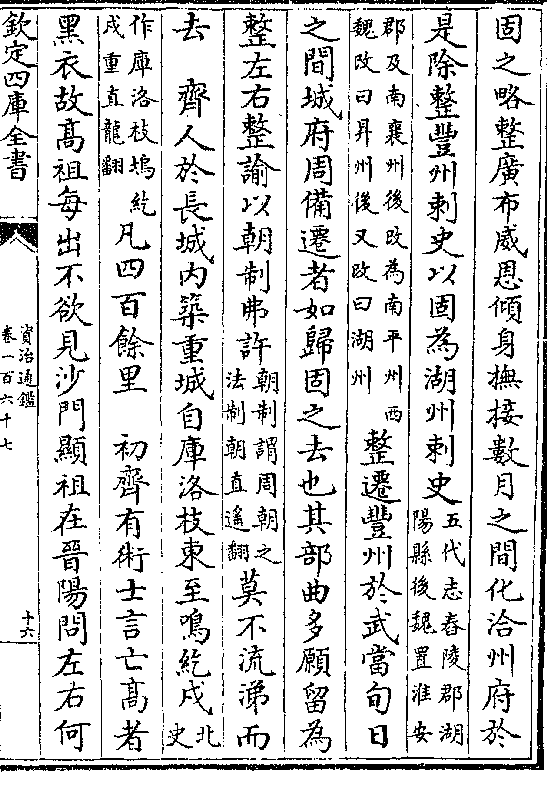 固之略整廣布威恩傾身撫接數月之間化洽州府於
是除整豐州刺史以固為湖州刺史五代志舂陵郡湖
陽縣後魏置淮安
郡及南襄州後改為南平州西
魏改曰昇州後又改曰湖州整遷豐州於武當旬日
之間城府周備遷者如歸固之去也其部曲多願留為
整左右整諭以朝制弗許朝制謂周朝之
法制朝直遙翻莫不流涕而
去 齊人於長城内築重城自庫洛枝東至鳴紇戍北
史
作庫洛枝塢紇
戍重直龍翻凡四百餘里 初齊有術士言亡高者
黑衣故高祖每出不欲見沙門顯祖在晉陽問左右何
欽定四庫全書
資治通鑑
卷一百六十七
十六